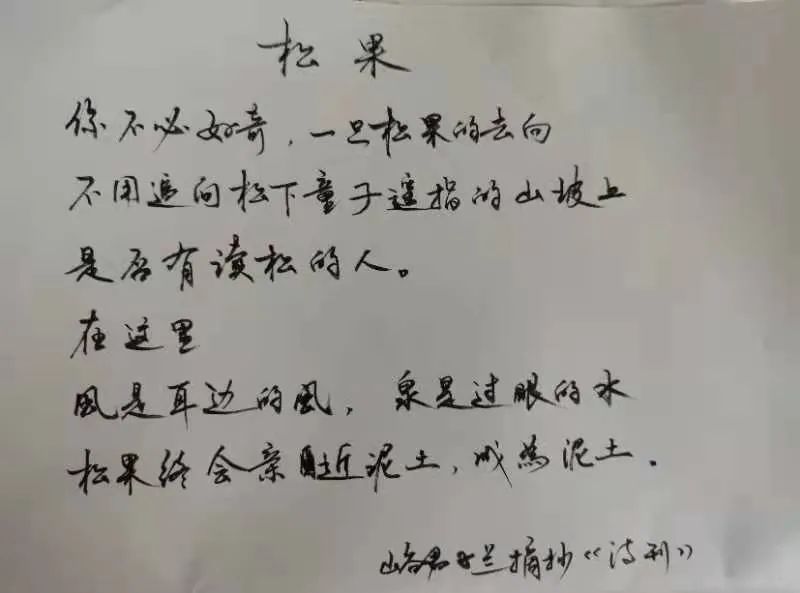 松果
你不必好奇，一旦松果的去向
不用追问松下童子遥指的山坡上
是否有读松的人。
在这里
風是耳边的風，泉是过眼的水
松果终会亲近泥土，成為泥土．
摘抄《诗刊》